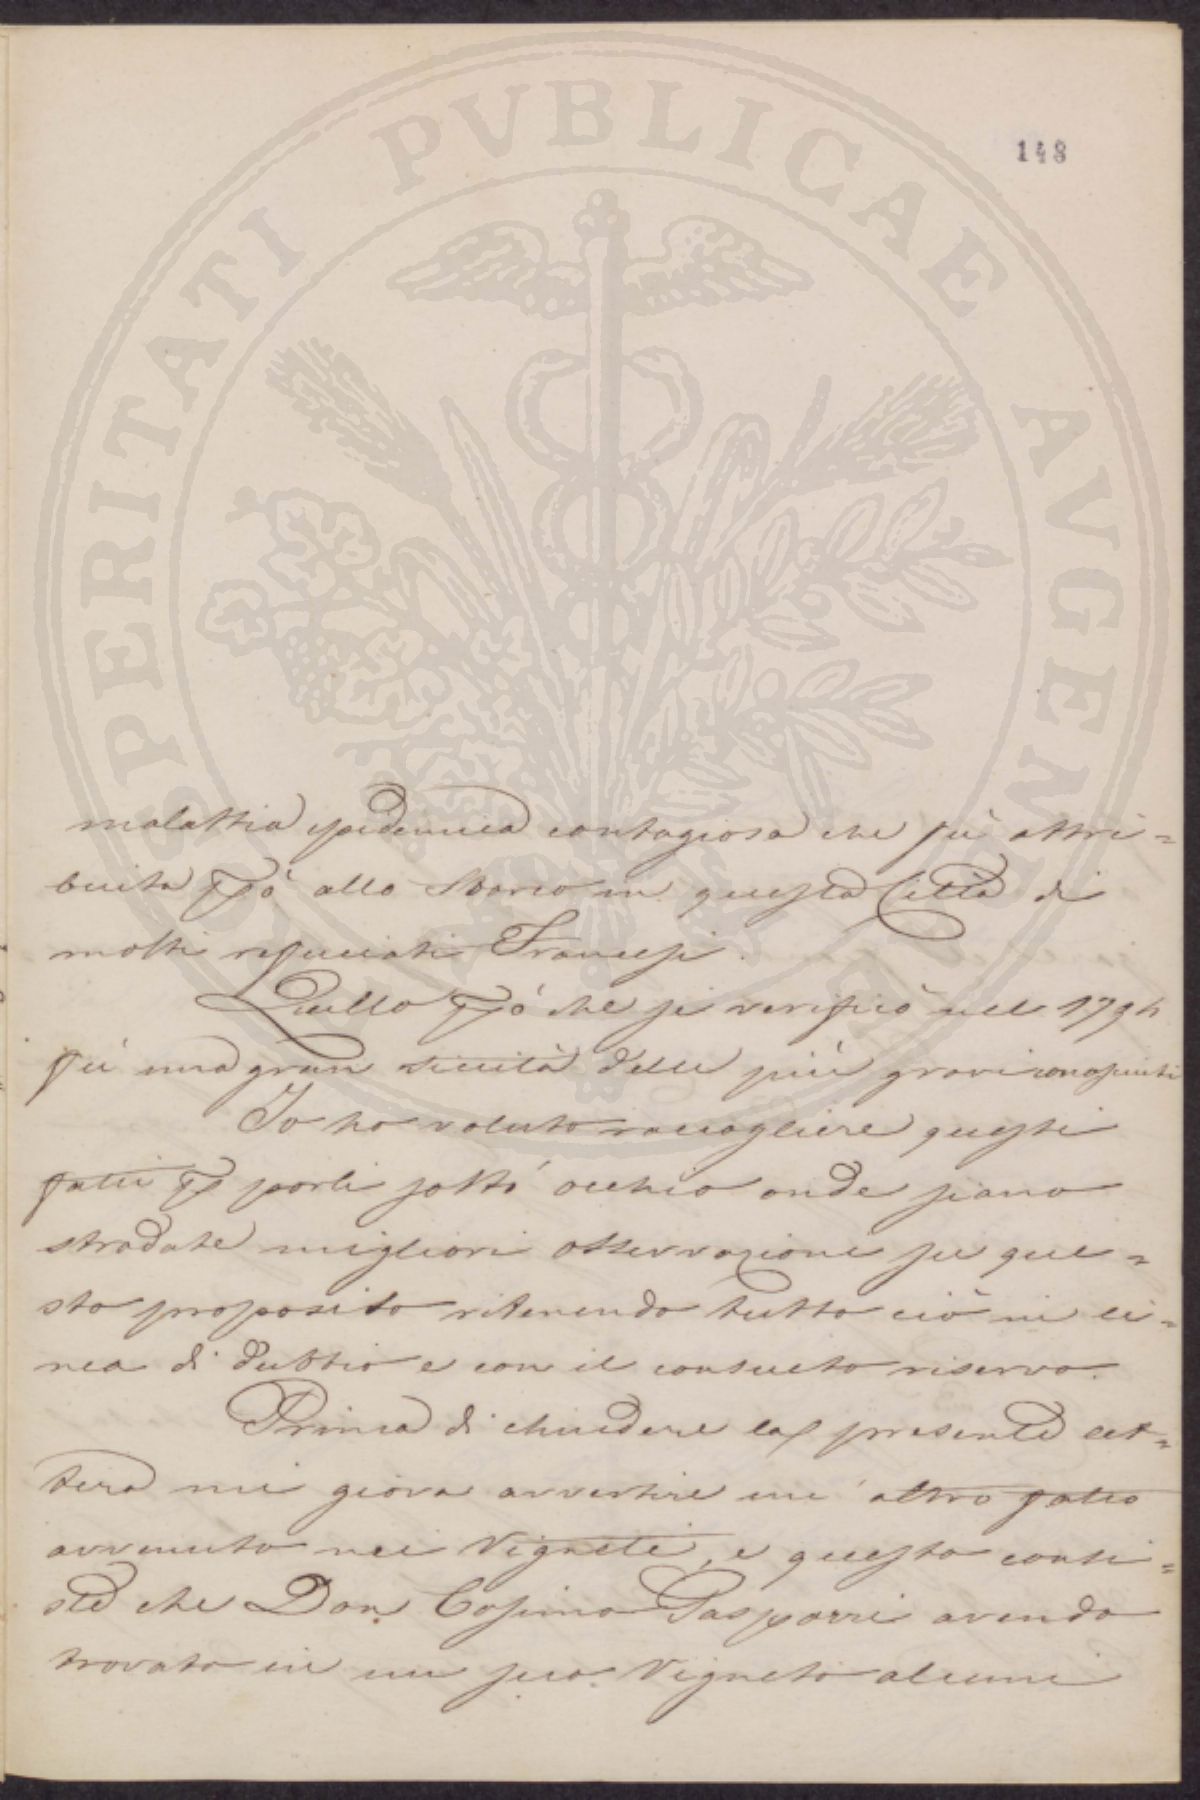 148
PROSPERITATI PUBLICAE AVGENDAE
malattia epidemica contagiosa che fù attri=
buita p̱ò allo sbarco in questa Città di
molti refuciati Francesi.
Quello p̱ò che si verificò nel 1794
fù una gran siccità delle più gravi conosciute
Io ho voluto raccogliere questi
fatti p̱ porli sott'occhio onde siano
stradate migliori osservazioni su que=
sto proposito ritenendo tutto ciò in li=
nea di dubbio e con il consueto riservo.
Prima di chiudere la presente let=
tera mi giova avvertire un'altro fatto
avvenuto nei Vigneti, e questo consi=
ste che Don Cosimo Gasparri avendo
trovato in un suo Vigneto alcuni